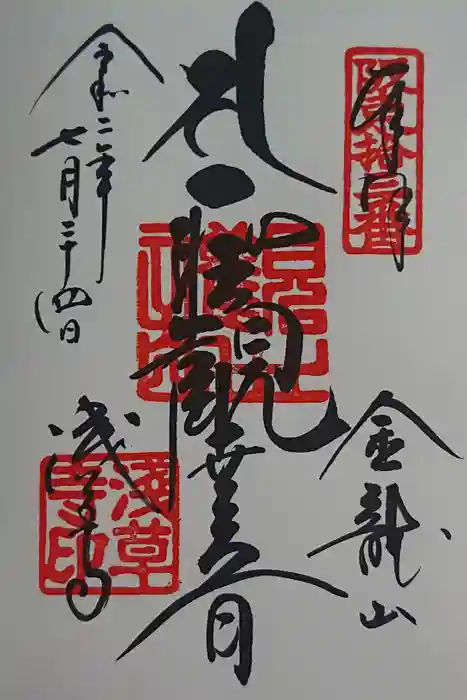 奉拝
坂東拾三番
金龍山
聖觀世音
令和二年
七月二十四日
浅草寺
淺草寺印